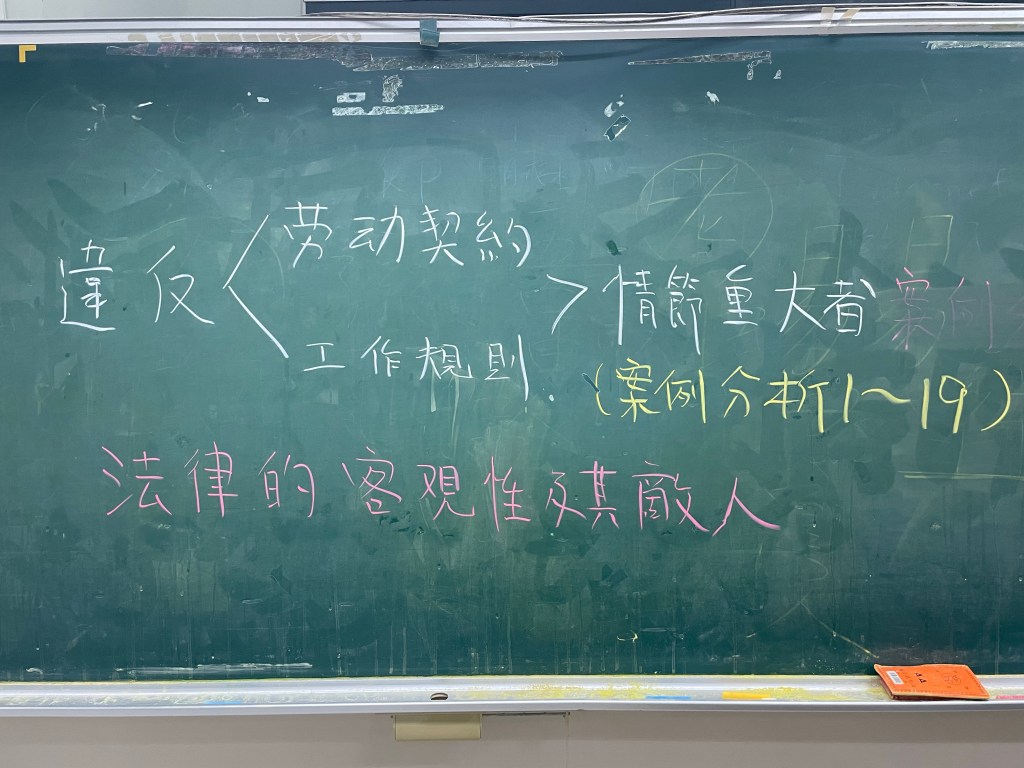 劳动契約
違反 < > 情節重大者 案例
工作規則
(案例分析1～19)
法律的客观性及其敵人